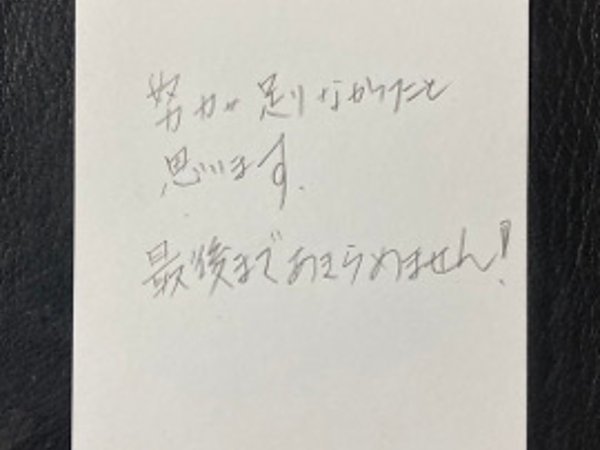 努力が足りなかったと
思います.
最後まであきらめません!